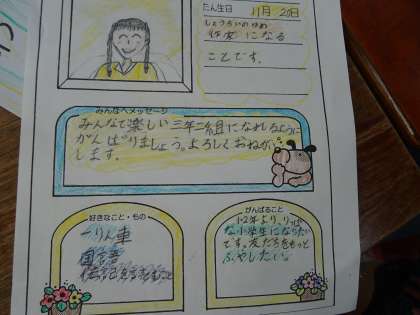 たん生日 11月 20日
しょうらいのゆめ
になる
ことです。
みんなへメッセージ
みんなで楽しい三年二組になれるように
がんばりましょう。よろしくおねがい
します。
好きなこと・もの
一りん車
国語
がんばること
1・2年より、りっぱ
な小学生になりたい
です。友だちをもっと
ふやしたい。